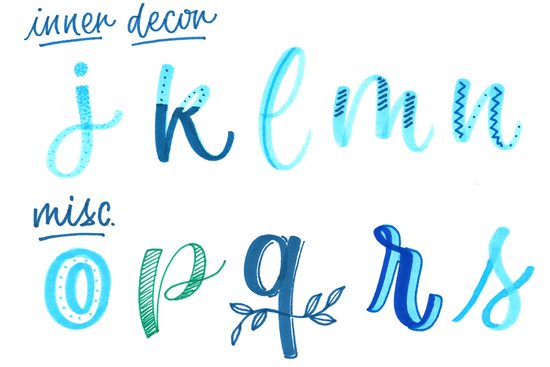 inner decor
j k l m n
misc.
o p q r s